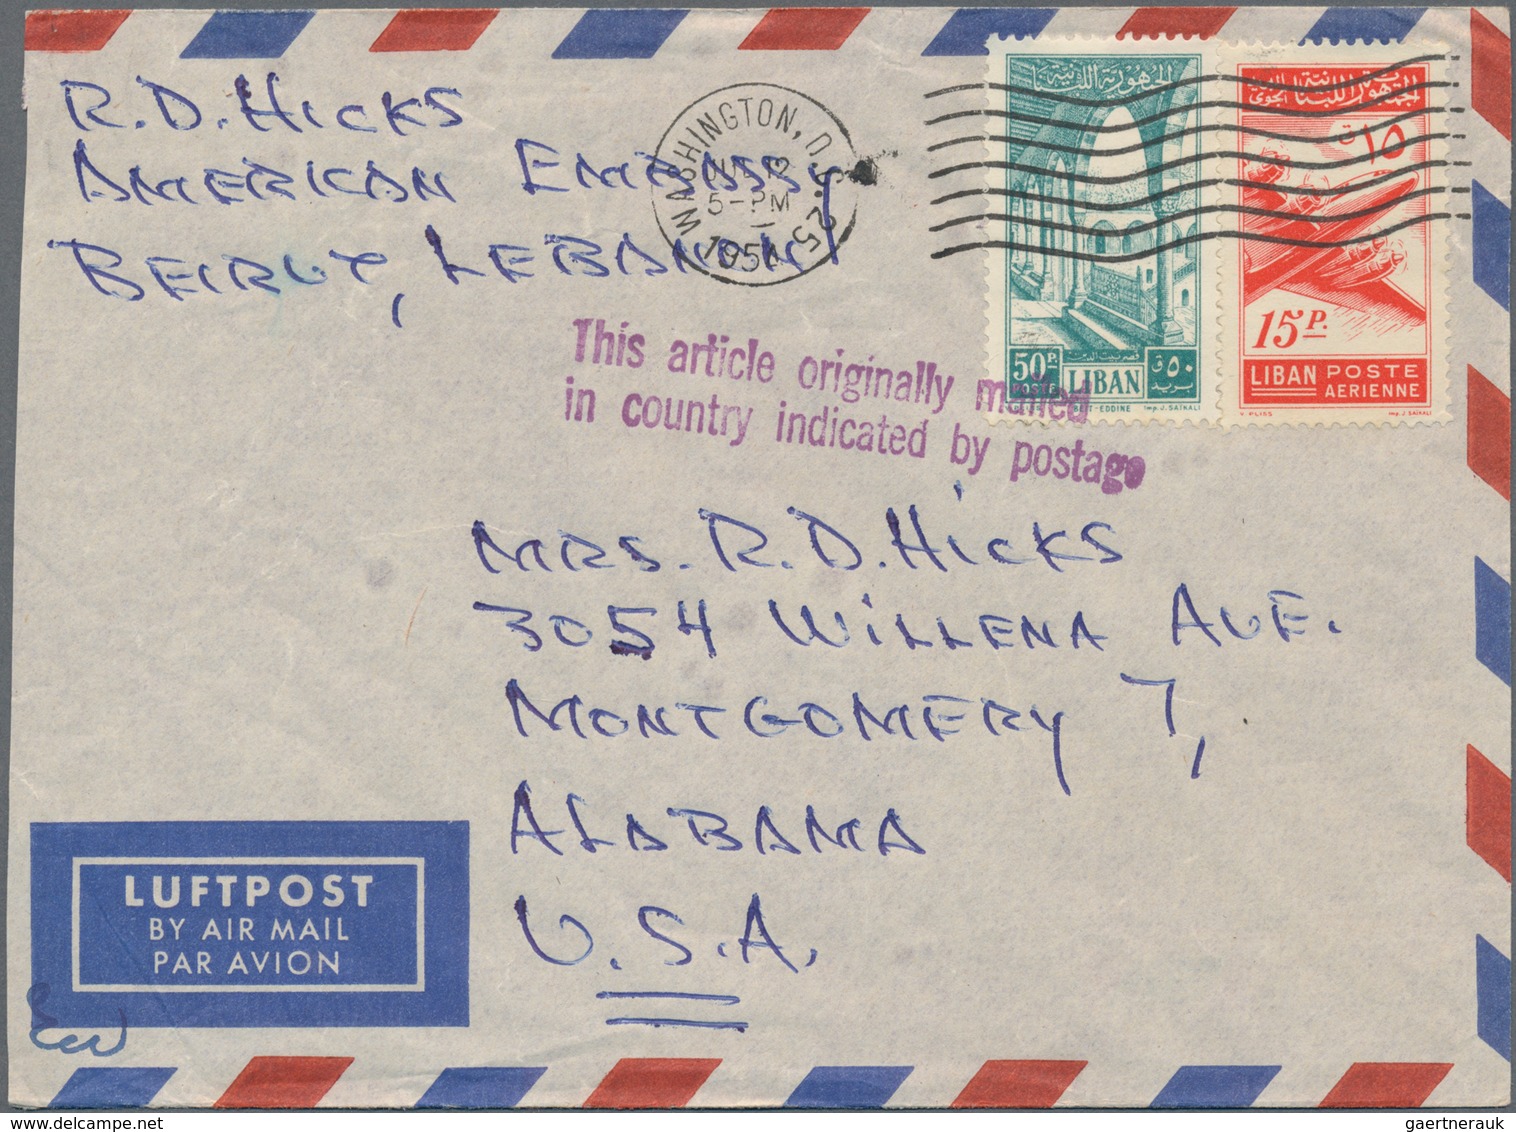 R.D. HICKS
AMERICAN EMBASSY
BEIRUT, LEBANON
WASHINGTON, D.C. 25
12
5-PM
1954
الجمهورية اللبنانية
50P. ٥٠ق
POSTE LIBAN بريد
BEIT-EDDINE Imp. J. SAÏKALI
الجمهورية اللبنانية
١٥ق
15P.
LIBAN POSTE
AERIENNE
V. PLISS Imp. J. SAÏKALI
This article originally mailed
in country indicated by postage
MRS. R.D. HICKS
3054 WILLENA AVE.
MONTGOMERY 7,
ALABAMA
U.S.A.
LUFTPOST
BY AIR MAIL
PAR AVION
gaertnerauk